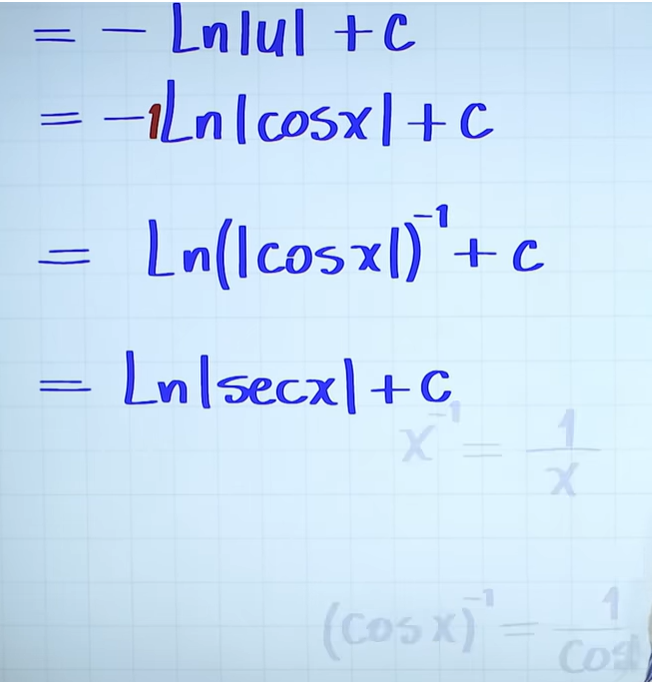 = - Ln|u| + c
= -1Ln|cosx| + c
= Ln(|cosx|)⁻¹ + c
= Ln|secx| + c
x⁻¹ = 1/x
(cosx)⁻¹ = 1/cos